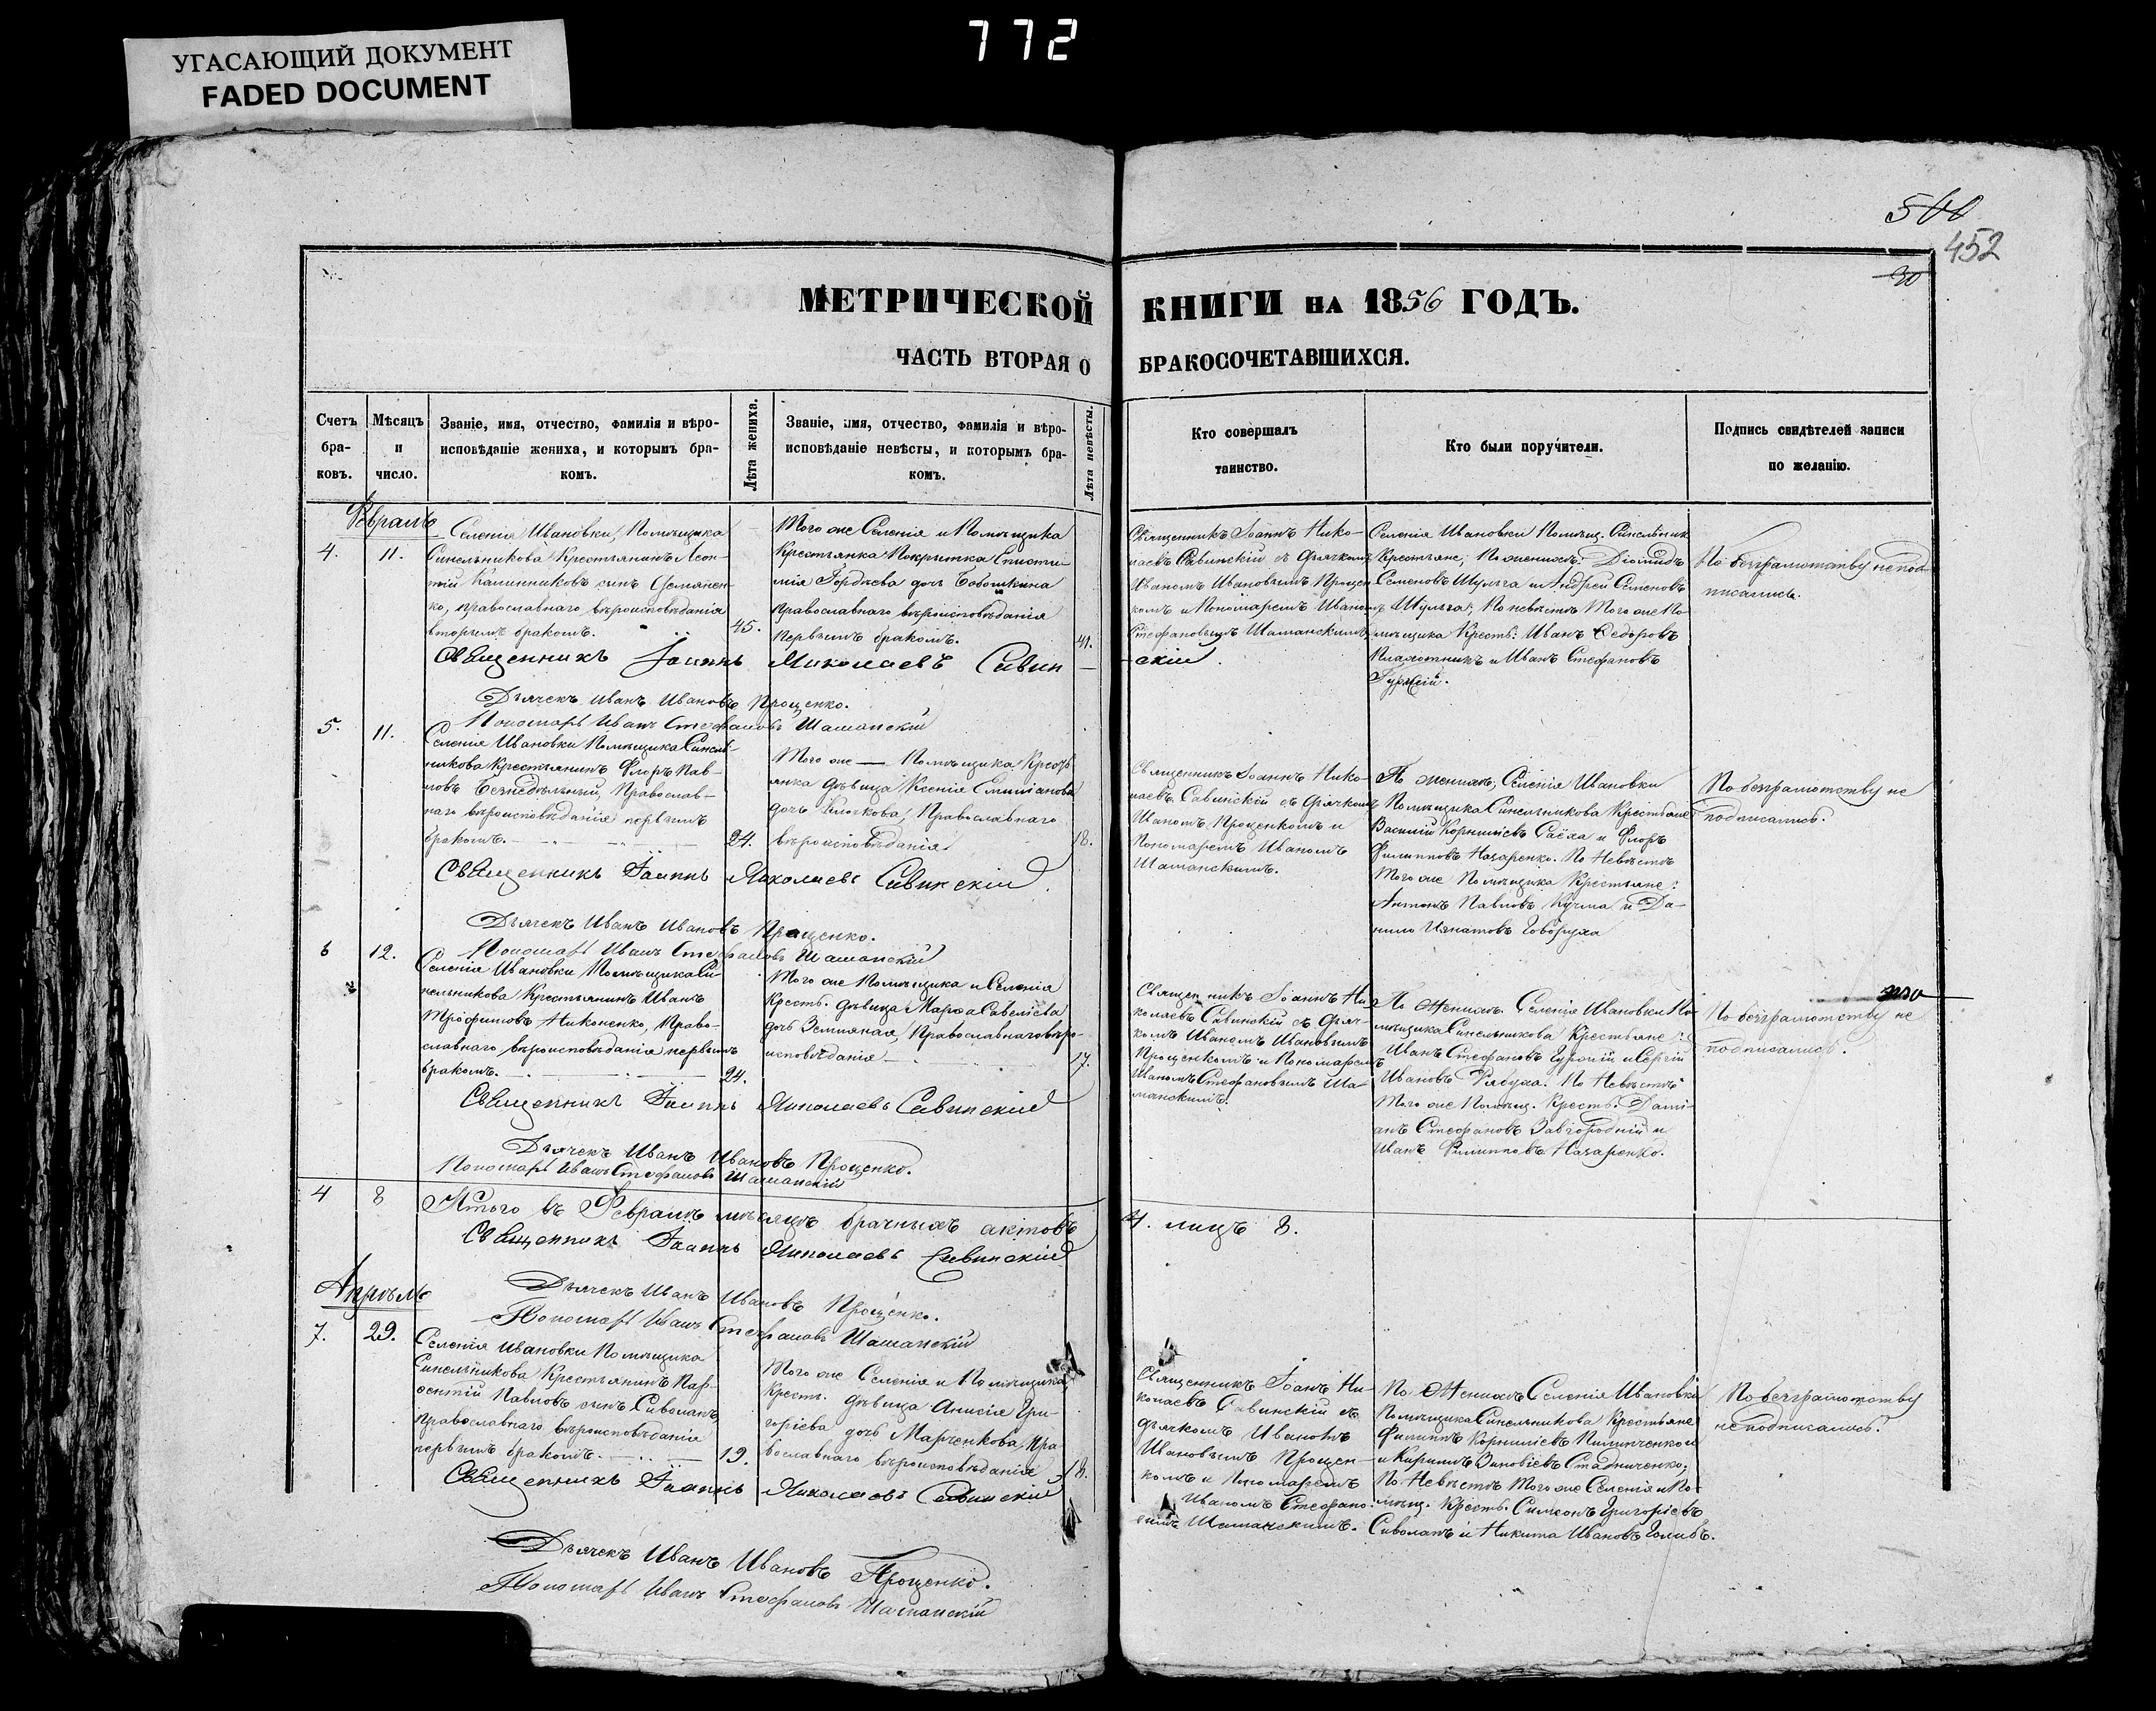 772
УГАСАЮЩИЙ ДОКУМЕНТ
FADED DOCUMENT
500
452
30
МЕТРИЧЕСКОЙ КНИГИ НА 1856 ГОДЪ.
ЧАСТЬ ВТОРАЯ О БРАКОСОЧЕТАВШИХСЯ.
Счетъ браковъ.
Мѣсяцъ и число.
Званіе, имя, отчество, фамилія и вѣро-
исповѣданіе жениха, и которымъ бра-
комъ.
Лѣта жениха.
Званіе, имя, отчество, фамилія и вѣро-
исповѣданіе невѣсты, и которымъ бра-
комъ.
Лѣта невѣсты.
Кто совершалъ
таинство.
Кто были поручители.
Подпись свидѣтелей записи
по желанію.
Февраль
4. 11.
Селенія Ивановки, Помѣщика
Синельникова Крестьянинъ Леон-
тій Калинниковъ сынъ
ко, православнаго вѣроисповѣданія
вторымъ бракомъ.
45.
Того же Селенія и Помѣщика
Крестьянка Покрытка
Гордѣева дочь Бовошкина
православнаго вѣроисповѣданія
первымъ бракомъ.
41.
Священникъ Іоаннъ Нико-
лаевъ Савинскій съ дьячкомъ
Иваномъ Ивановымъ Прощен-
комъ и Пономаремъ Иваномъ
Стефановымъ Шаманскимъ
Селенія Ивановки Помѣщ. Синельник.
Крестьяне; По женихѣ: Діомидъ
Семеновъ Шульга и Андрей Семеновъ
Шульга; По невѣстѣ Того же По-
мѣщика Кресть: Иванъ Федоровъ
Плахотникъ и Иванъ Стефановъ
Гуржій.
По безграмотству не под-
писались.
Священникъ Іоаннъ Николаевъ Савин-
скій.
Дьячекъ Иванъ Ивановъ Прощенко.
Пономарь Иванъ Стефановъ Шаманскій
5. 11.
Селенія Ивановки Помѣщика Синель-
никова Крестьянинъ Флоръ Пав-
ловъ Безнедѣльный, Православ-
наго вѣроисповѣданія первымъ
бракомъ.
24.
Того же — Помѣщика Кресть-
янка дѣвица Ксенія Емиліанова
дочь Клочкова, Православнаго
вѣроисповѣданія
18.
Священникъ Іоаннъ Нико-
лаевъ Савинскій съ дьячкомъ
Иваномъ Прощенкомъ и
Пономаремъ Иваномъ
Шаманскимъ.
По женихѣ; Селенія Ивановки
Помѣщика Синельникова Крестьяне
Василій Корниліевъ и Флоръ
Филипповъ Назаренко. По Невѣстѣ
Того же Помѣщика Крестьяне:
Антонъ Павловъ Кучма и Да-
нило Игнатовъ Говоруха
По безграмотству не
подписались.
Священникъ Іоаннъ Николаевъ Савинскій.
Дьячекъ Иванъ Ивановъ Прощенко.
Пономарь Иванъ Стефановъ Шаманскій
6 12.
Селенія Ивановки Помѣщика Си-
нельникова Крестьянинъ Иванъ
Трофимовъ Никоненко, Право-
славнаго вѣроисповѣданія первымъ
бракомъ.
24.
Того же Помѣщика и Селенія
Кресть. дѣвица Марѳа Савеліева
дочь Земляная, Православнаго вѣро-
исповѣданія
17.
Священникъ Іоаннъ Ни-
колаевъ Савинскій съ дьяч-
комъ Иваномъ Ивановымъ
Прощенкомъ и Пономаремъ
Иваномъ Стефановымъ Ша-
манскимъ.
По Женихѣ Селенія Ивановки По-
мѣщика Синельникова Крестьяне:
Иванъ Стефановъ Гуржій и Сергій
Ивановъ Рябуха. По Невѣстѣ
Того же Помѣщ. Кресть. Дамі-
анъ Стефановъ Завгородній и
Иванъ Филипповъ Назаренко.
По безграмотству не
подписались.
Священникъ Іоаннъ Николаевъ Савинскій
Дьячекъ Иванъ Ивановъ Прощенко.
Пономарь Иванъ Стефановъ Шаманскій
4 8 Итого въ Февралѣ мѣсяцѣ брачныхъ актовъ 4. лицъ 8.
Священникъ Іоаннъ Николаевъ Савинскій
Дьячекъ Иванъ Ивановъ Прощенко.
Пономарь Иванъ Стефановъ Шаманскій
Апрѣль
7. 29.
Селенія Ивановки Помѣщика
Синельникова Крестьянинъ Пар-
ѳентій Павловъ сынъ Сиволапъ,
Православнаго вѣроисповѣданія
первымъ бракомъ.
19.
Того же Селенія и Помѣщика
Кресть. дѣвица Анисія Гри-
горіева дочь Марченкова, Пра-
вославнаго вѣроисповѣданія
18.
Священникъ Іоанъ Ни-
колаевъ Савинскій съ
дьячкомъ Иваномъ
Ивановымъ Прощен-
комъ и Пономаремъ
Иваномъ Стефано-
вымъ Шаманскимъ.
По Женихѣ Селенія Ивановки
Помѣщика Синельникова Крестьяне
Филиппъ Корниліевъ Пилипченко и
и Кириллъ Зиновіевъ Стадниченко;
По Невѣстѣ Того же Селенія и По-
мѣщ. Кресть. Симеонъ Григоріевъ
Сиволапъ и Никита Ивановъ Голивъ.
По безграмотству
не подписались.
Священникъ Іоаннъ Николаевъ Савинскій
Дьячекъ Иванъ Ивановъ Прощенко.
Пономарь Иванъ Стефановъ Шаманскій